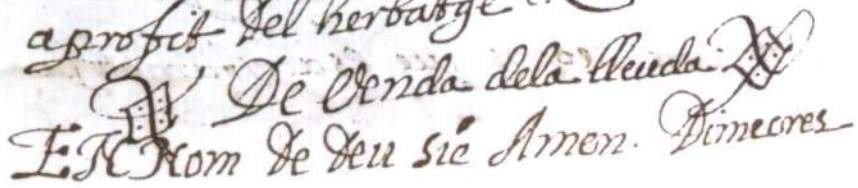 aprofit del herbatge
De Venda dela lleuda
EN Nom de deu sie Amen. Dimecres